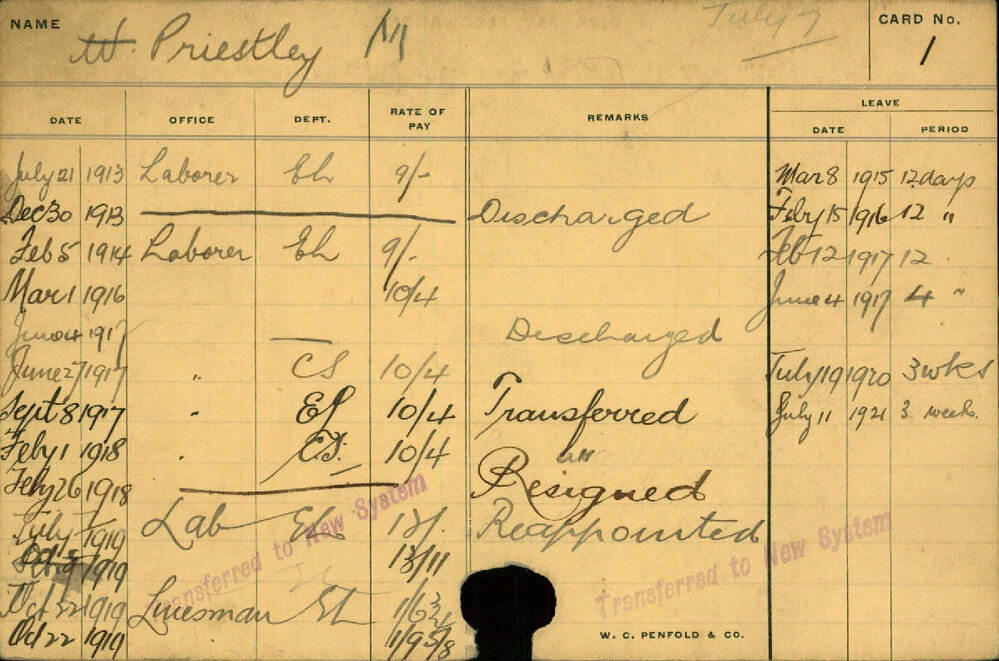 NAME W. Priestley July 7 CARD No. 1
DATE OFFICE DEPT. RATE OF PAY REMARKS LEAVE
DATE PERIOD
July 21 1913 Laborer EL 9/- Mar 8 1915 12 days
Dec 30 1913 Discharged Feby 15 1916 12 "
Feb 5 1914 Laborer EL 9/- Feb 12 1917 12
Mar 1 1916 10/4 June 4 1917 4 "
June 4 1917 Discharged
June 27 1917 " CS 10/4 July 19 1920 3 wks
Sept 8 1917 " EL 10/4 Transferred July 11 1921 3 weeks.
Feby 1 1918 " 10/4
Feby 26 1918 Resigned
July 1919 Lab EL 13/. Reappointed
1919 13/11
Oct 22 1919 Linesman EL
Oct 22 1919 1/9 5/8
Transferred to New System
Transferred to New System
W. C. PENFOLD & CO.